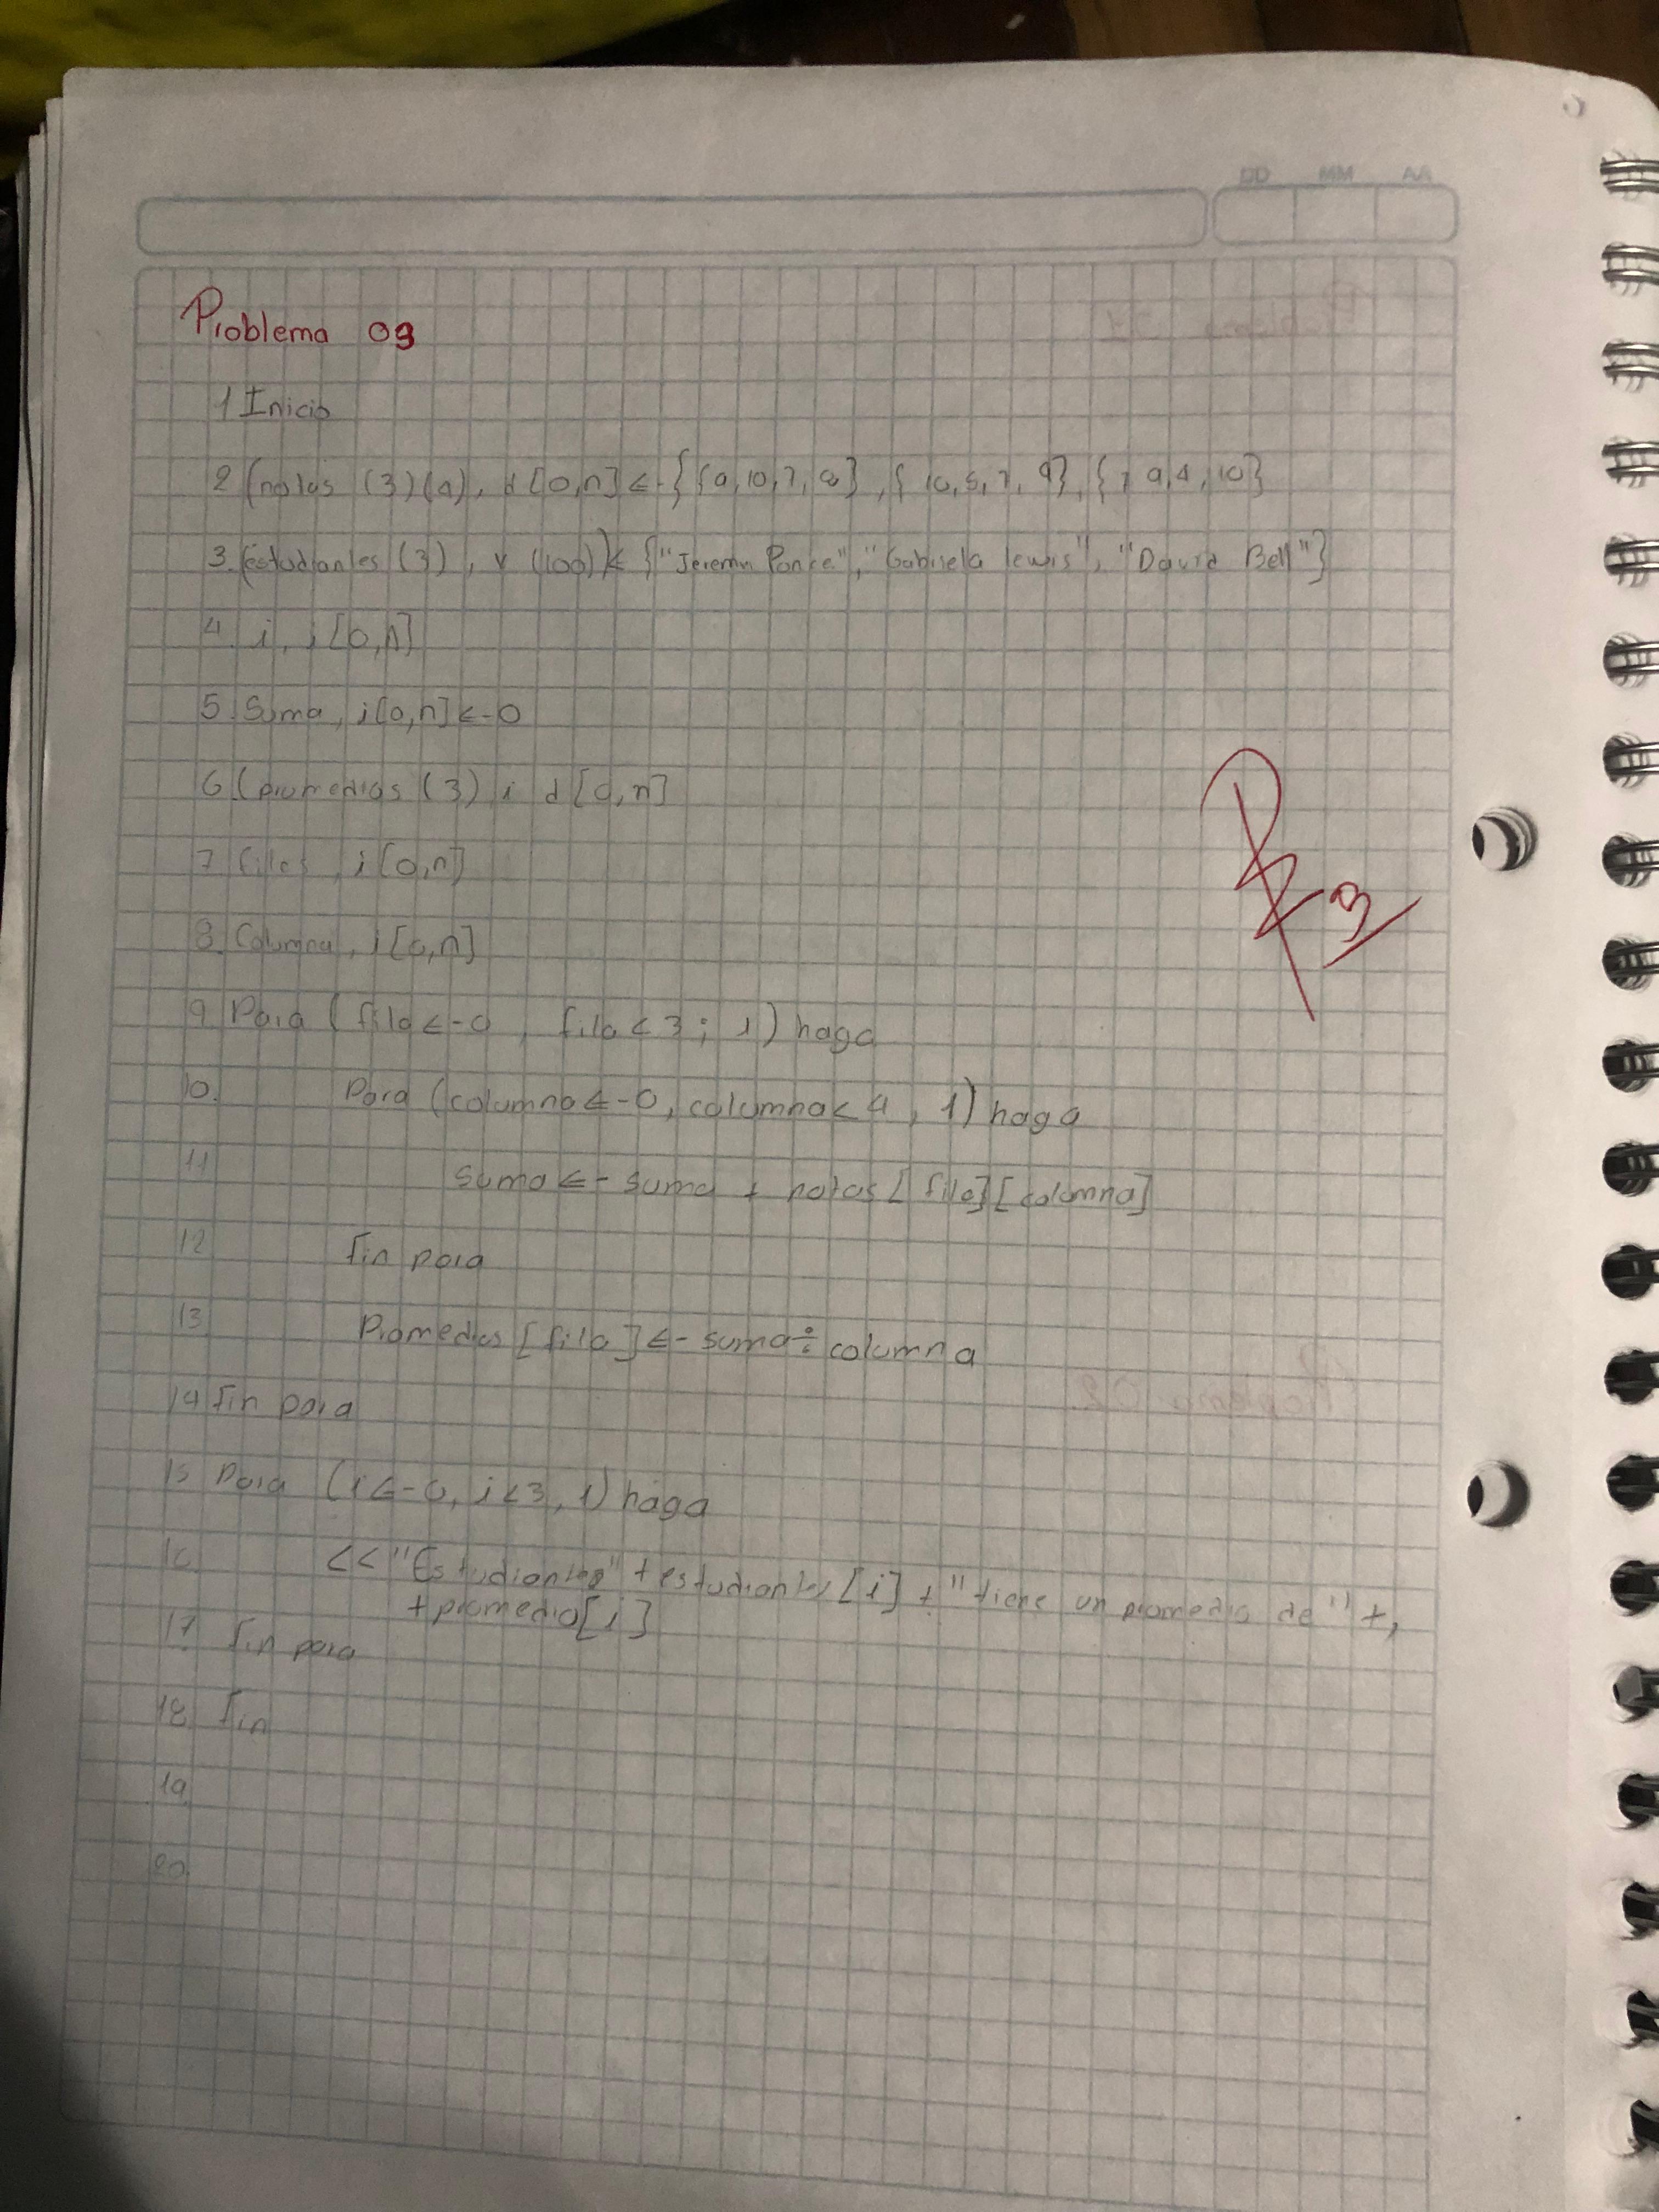 AA MM DD
Problema 09
1 Inicio
2 (notas (3)(4), d[0,n] <- { {9,10,7,8}, { 10,5,7,9}, {7 9,4,10}
3. (estudiantes (3), v (100) < {"Jeremn Ponce", "Gabriela lewis", "David Bell"}
4 i, i[0,n]
5. Suma, i[0,n] <-0
6. (promedios (3) i d[0,n]
7 filas, i[0,n]
8. Columna, i[0,n]
9 Para (fila <-0, fila < 3; 1) haga
10. Para (columna <-0, columna < 4, 1) haga
11 suma <- suma + notas [fila][columna]
12 fin para
13 Promedios [fila] <- suma ÷ columna
14 fin para
15 Para (i <-0, i<3, 1) haga
16 << "Estudiantes" + estudiantes [i] + "tiene un promedio de" +,
+promedio[i]
17 fin para
18 fin
19
20.